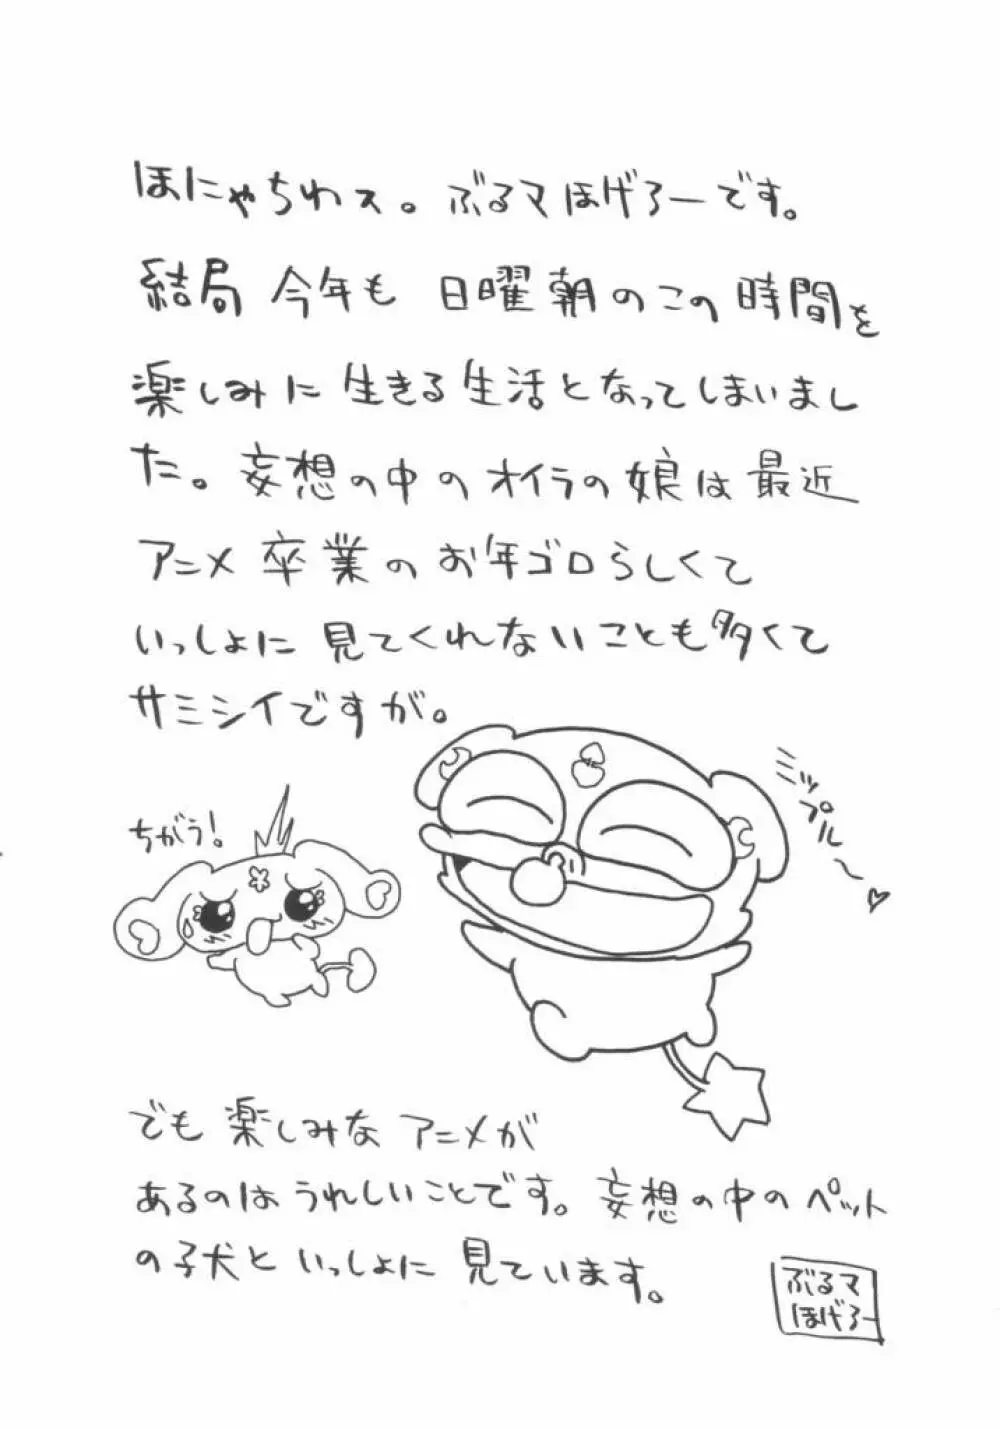 ほにゃちわス。ぶるマほげろーです。
結局 今年も 日曜朝のこの時間を
楽しみに生きる生活となってしまいまし
た。妄想の中のオイラの娘は最近
アニメ卒業のお年ゴロらしくて
いっしょに見てくれないことも多くて
サミシイですが。
ちがう!
ミップル〜♡
でも楽しみなアニメが
あるのはうれしいことです。妄想の中のペット
の子犬といっしょに見ています。
ぶるマ
ほげろー